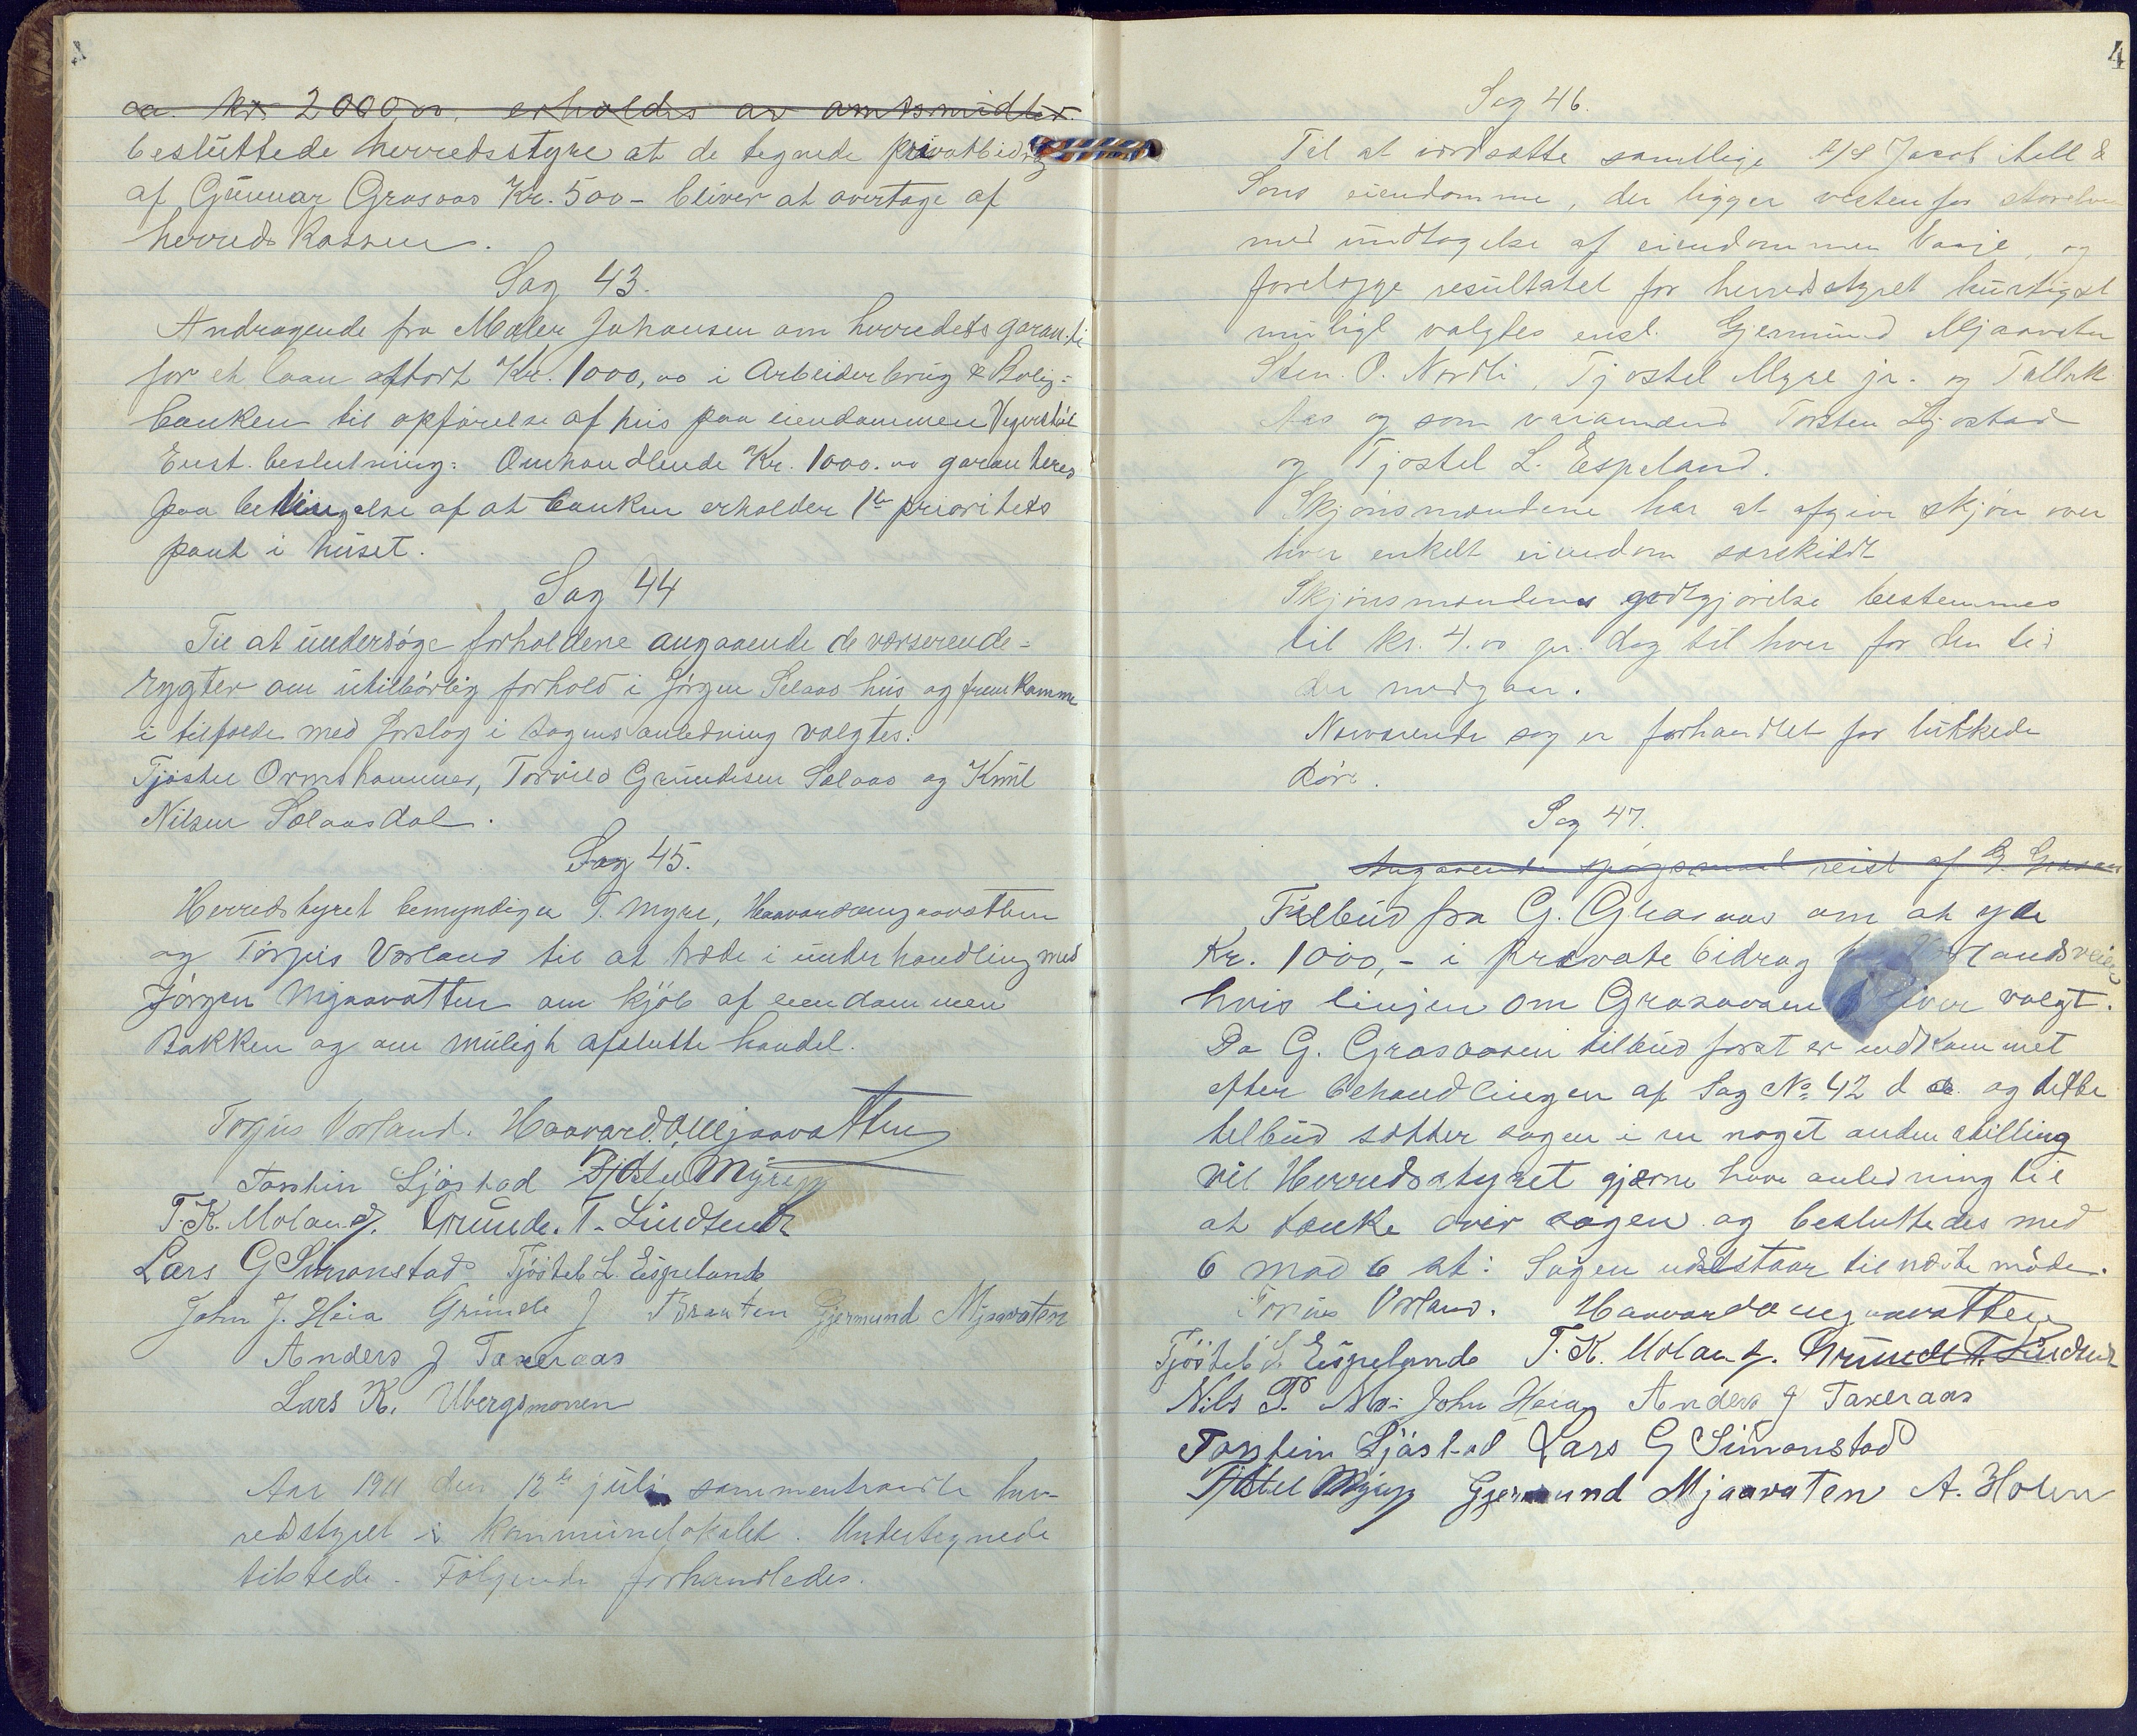 ca. kr. 2000,00. erholdes av amtsmidler.
besluttede herredsstyre at de tegnede privatbidrag
af Gunnar Grasaas Kr. 500- bliver at overtage af
herredskassen.
Sag 43.
Andragende fra Maler Johansen om herredets garanti
for et laan stort Kr. 1000,00 i Arbeiderbrug & Bolig-
banken til opførelse af hus paa eiendommen
Enst. beslutning: Omhandlende Kr. 1000.00 garanteres
paa betingelse af at banken erholder 1ste prioritets
pant i huset.
Sag 44
Til at undersøge forholdene angaaende de værserende-
rygter om utilbørlig forhold i Jørgen Selaas hus og fremkomme
i tilfælde med forslag i sagens anledning valgtes:
Tjøstel Ormshammer, Torvild Grundesen Selaas og Knut
Nilsen Selaasdal.
Sag 45.
Herredstyret bemyndiger T. Myre, Haavard Mjaavatten
og Torjus Vorland til at træde i underhandling med
Jørgen Mjaavatten om kjøb af eiendommen
Bakken og om muligt afslutte handel.
Torjus Vorland. Haavard O Mjaavatten
Torstein Ljøstad Tjøstel Myre jr
T. K. Moland. Grunde. T. Lindtveit
Lars G Simonstad Tjøstel L. Espelande
John J. Heia Grunde J Braaten Gjermund Mjaavaten
Anders J Taxeraas
Lars K. Ubergsmoen
Aar 1911 den 12te juli sammentraadte her-
redstyret i kommunelokalet. Undertegnede
tilstede. Følgende forhandledes.
4
Sag 46.
Til at værdsætte samtlige A/S Jacob Aall &
Søns eiendomme, der ligger vestenfor storelven
med undtagelse af eiendommen Vaaje, og
forelægge resultatet for herredstyret hurtigst
muligt valgtes enst. Gjermund Mjaavaten
Sten. O. Nordli, Tjøstel Myre jr. og Tallak
Aas og som varamænd Torsten Ljøstad
og Tjøstel L. Espeland.
Skjønsmændene har at afgive skjøn over
hver enkelt eiendom særskildt
Skjønsmændenes godtgjørelse bestemmes
til kr. 4.00 pr. dag til hver for den tid
der medgaar.
Nærværende sag er forhandlet for lukkede
døre.
Sag 47.
Angaaende spørgsmaal reist af G. Grasaas
Tilbud fra G. Grasaas om at yde
Kr. 1000,- i private bidrag landsveien
hvis linjen om Grasaasen bliver valgt.
Da G. Grasaasen tilbud først er indkommet
efter behandlingen af Sag No 42 d a. og dette
tilbud sætter sagen i en noget anden stilling
vil Herredsstyret gjærne have anledning til
at tænke over sagen og besluttedes med
6 mod 6 at: Sagen udestaar til næste møde.
Torjus Vorland. Haavard O Mjaavatten
Tjøstel L Espelande T. K. Moland. Grunde T. Lindtveit
Nils P. Mo. John Heia Anders J Taxeraas
Torstein Ljøstad Lars G Simonstad
Tjøstel Myre jr Gjermund Mjaavaten A. Holen